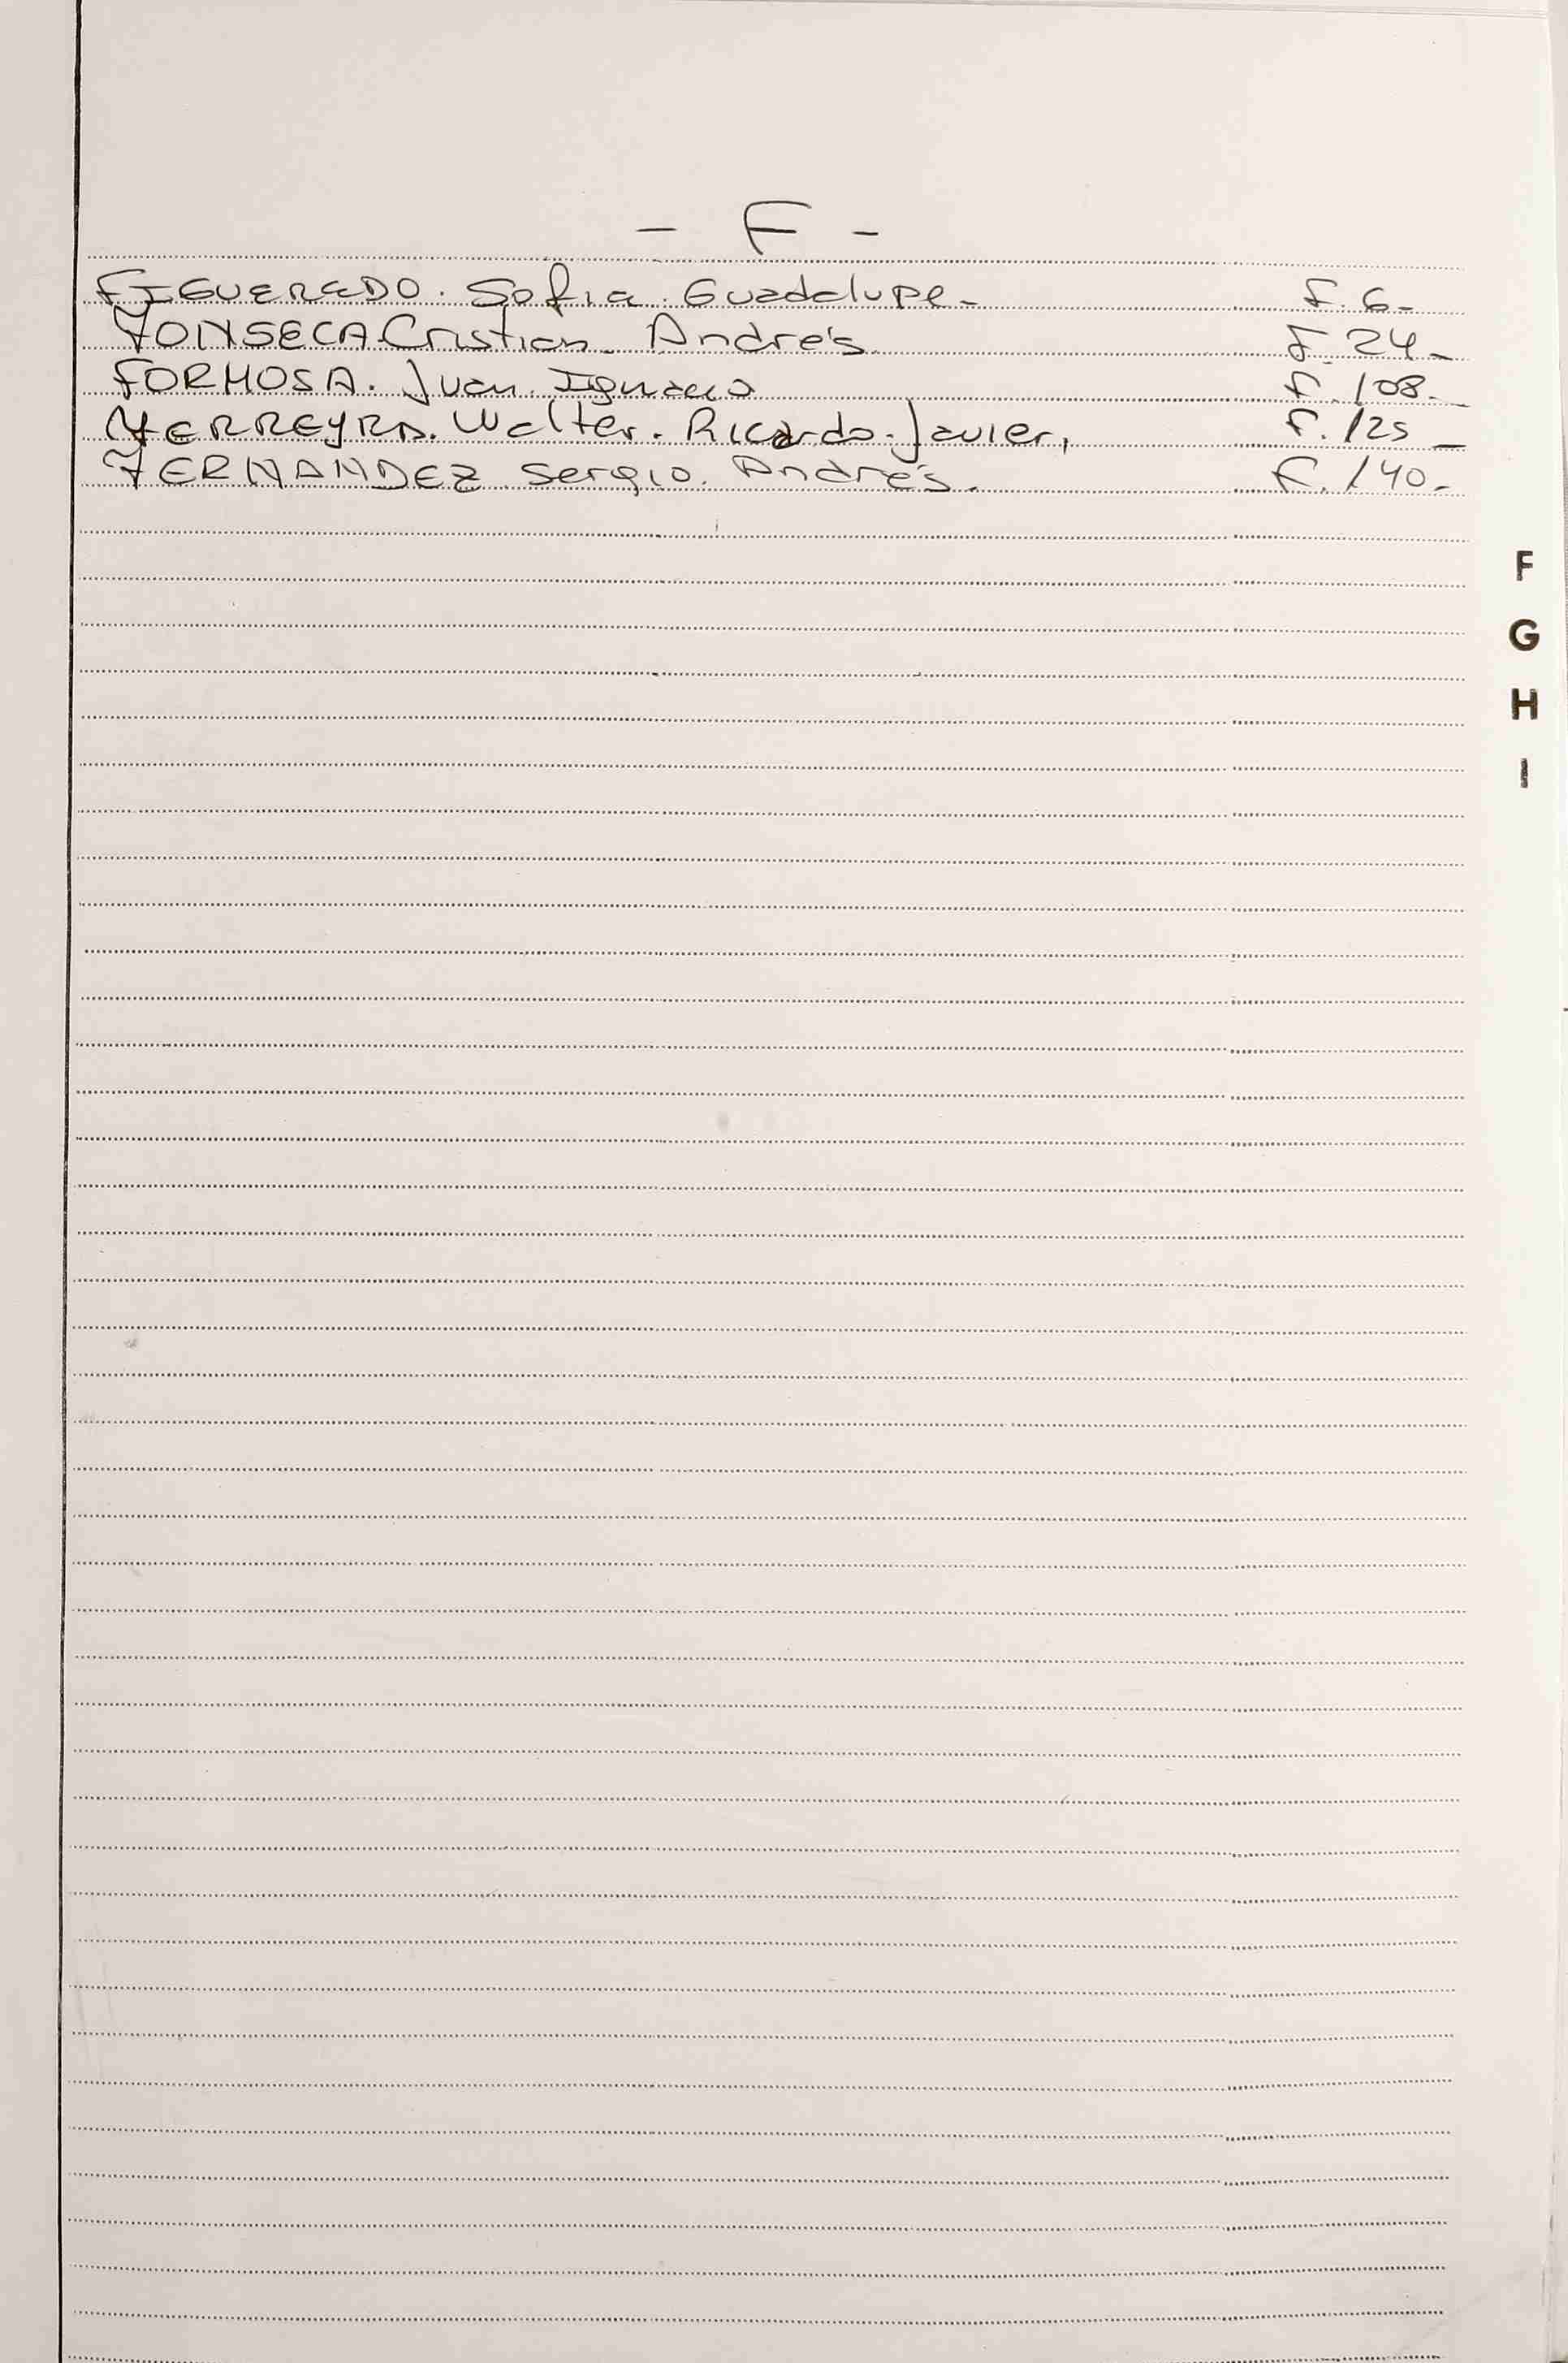 - F -
FIGUEREDO. Sofia. Guadalupe. F. 6-
FONSECA Cristian. Andrés. F. 24-
FORMOSA. Juan. Ignacio F. 108-
FERREYRA. Walter. Ricardo. Javier, F. 125-
FERNANDEZ. Sergio. Andrés. F. 140-
F
G
H
I